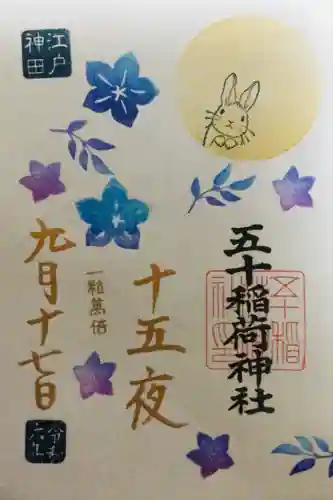 江戸
神田
五十稲荷神社
十五夜
一粒萬倍
九月十七日
令和
六年